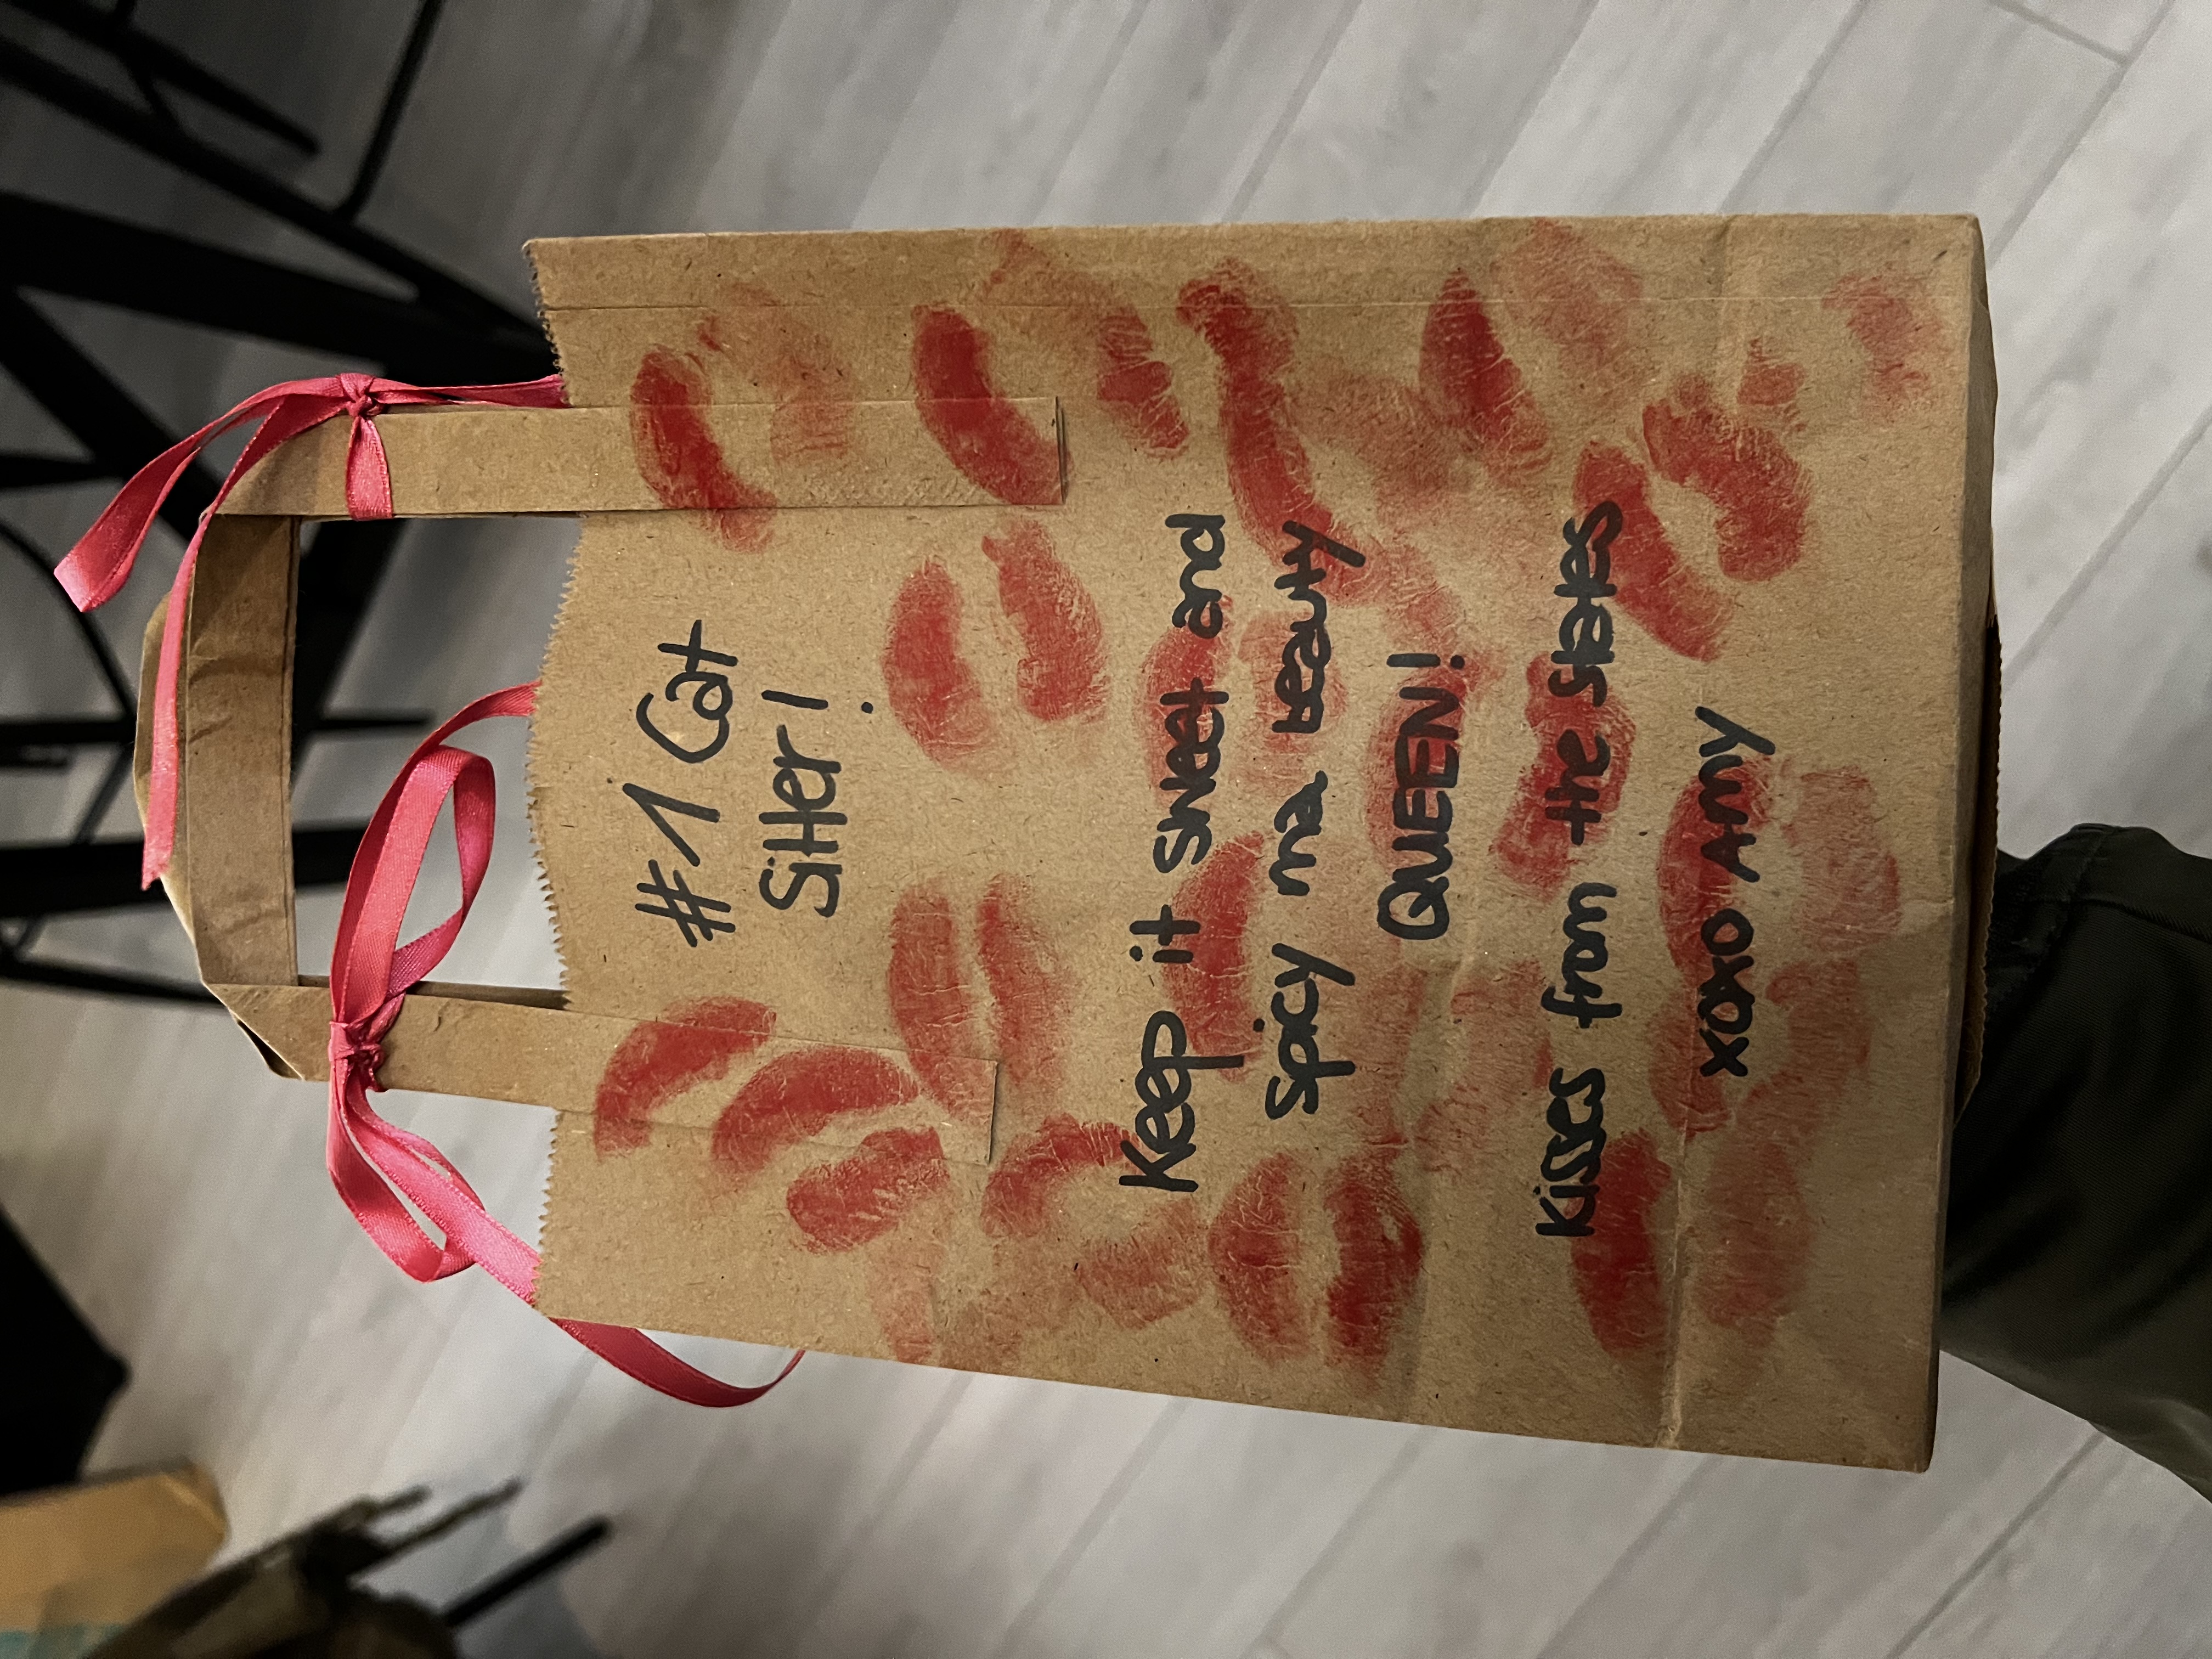 #1 Cat
Sitter!
Keep it sweet and
spicy ma beauty
QUEEN!
Kisses from the states
xoxo AMY